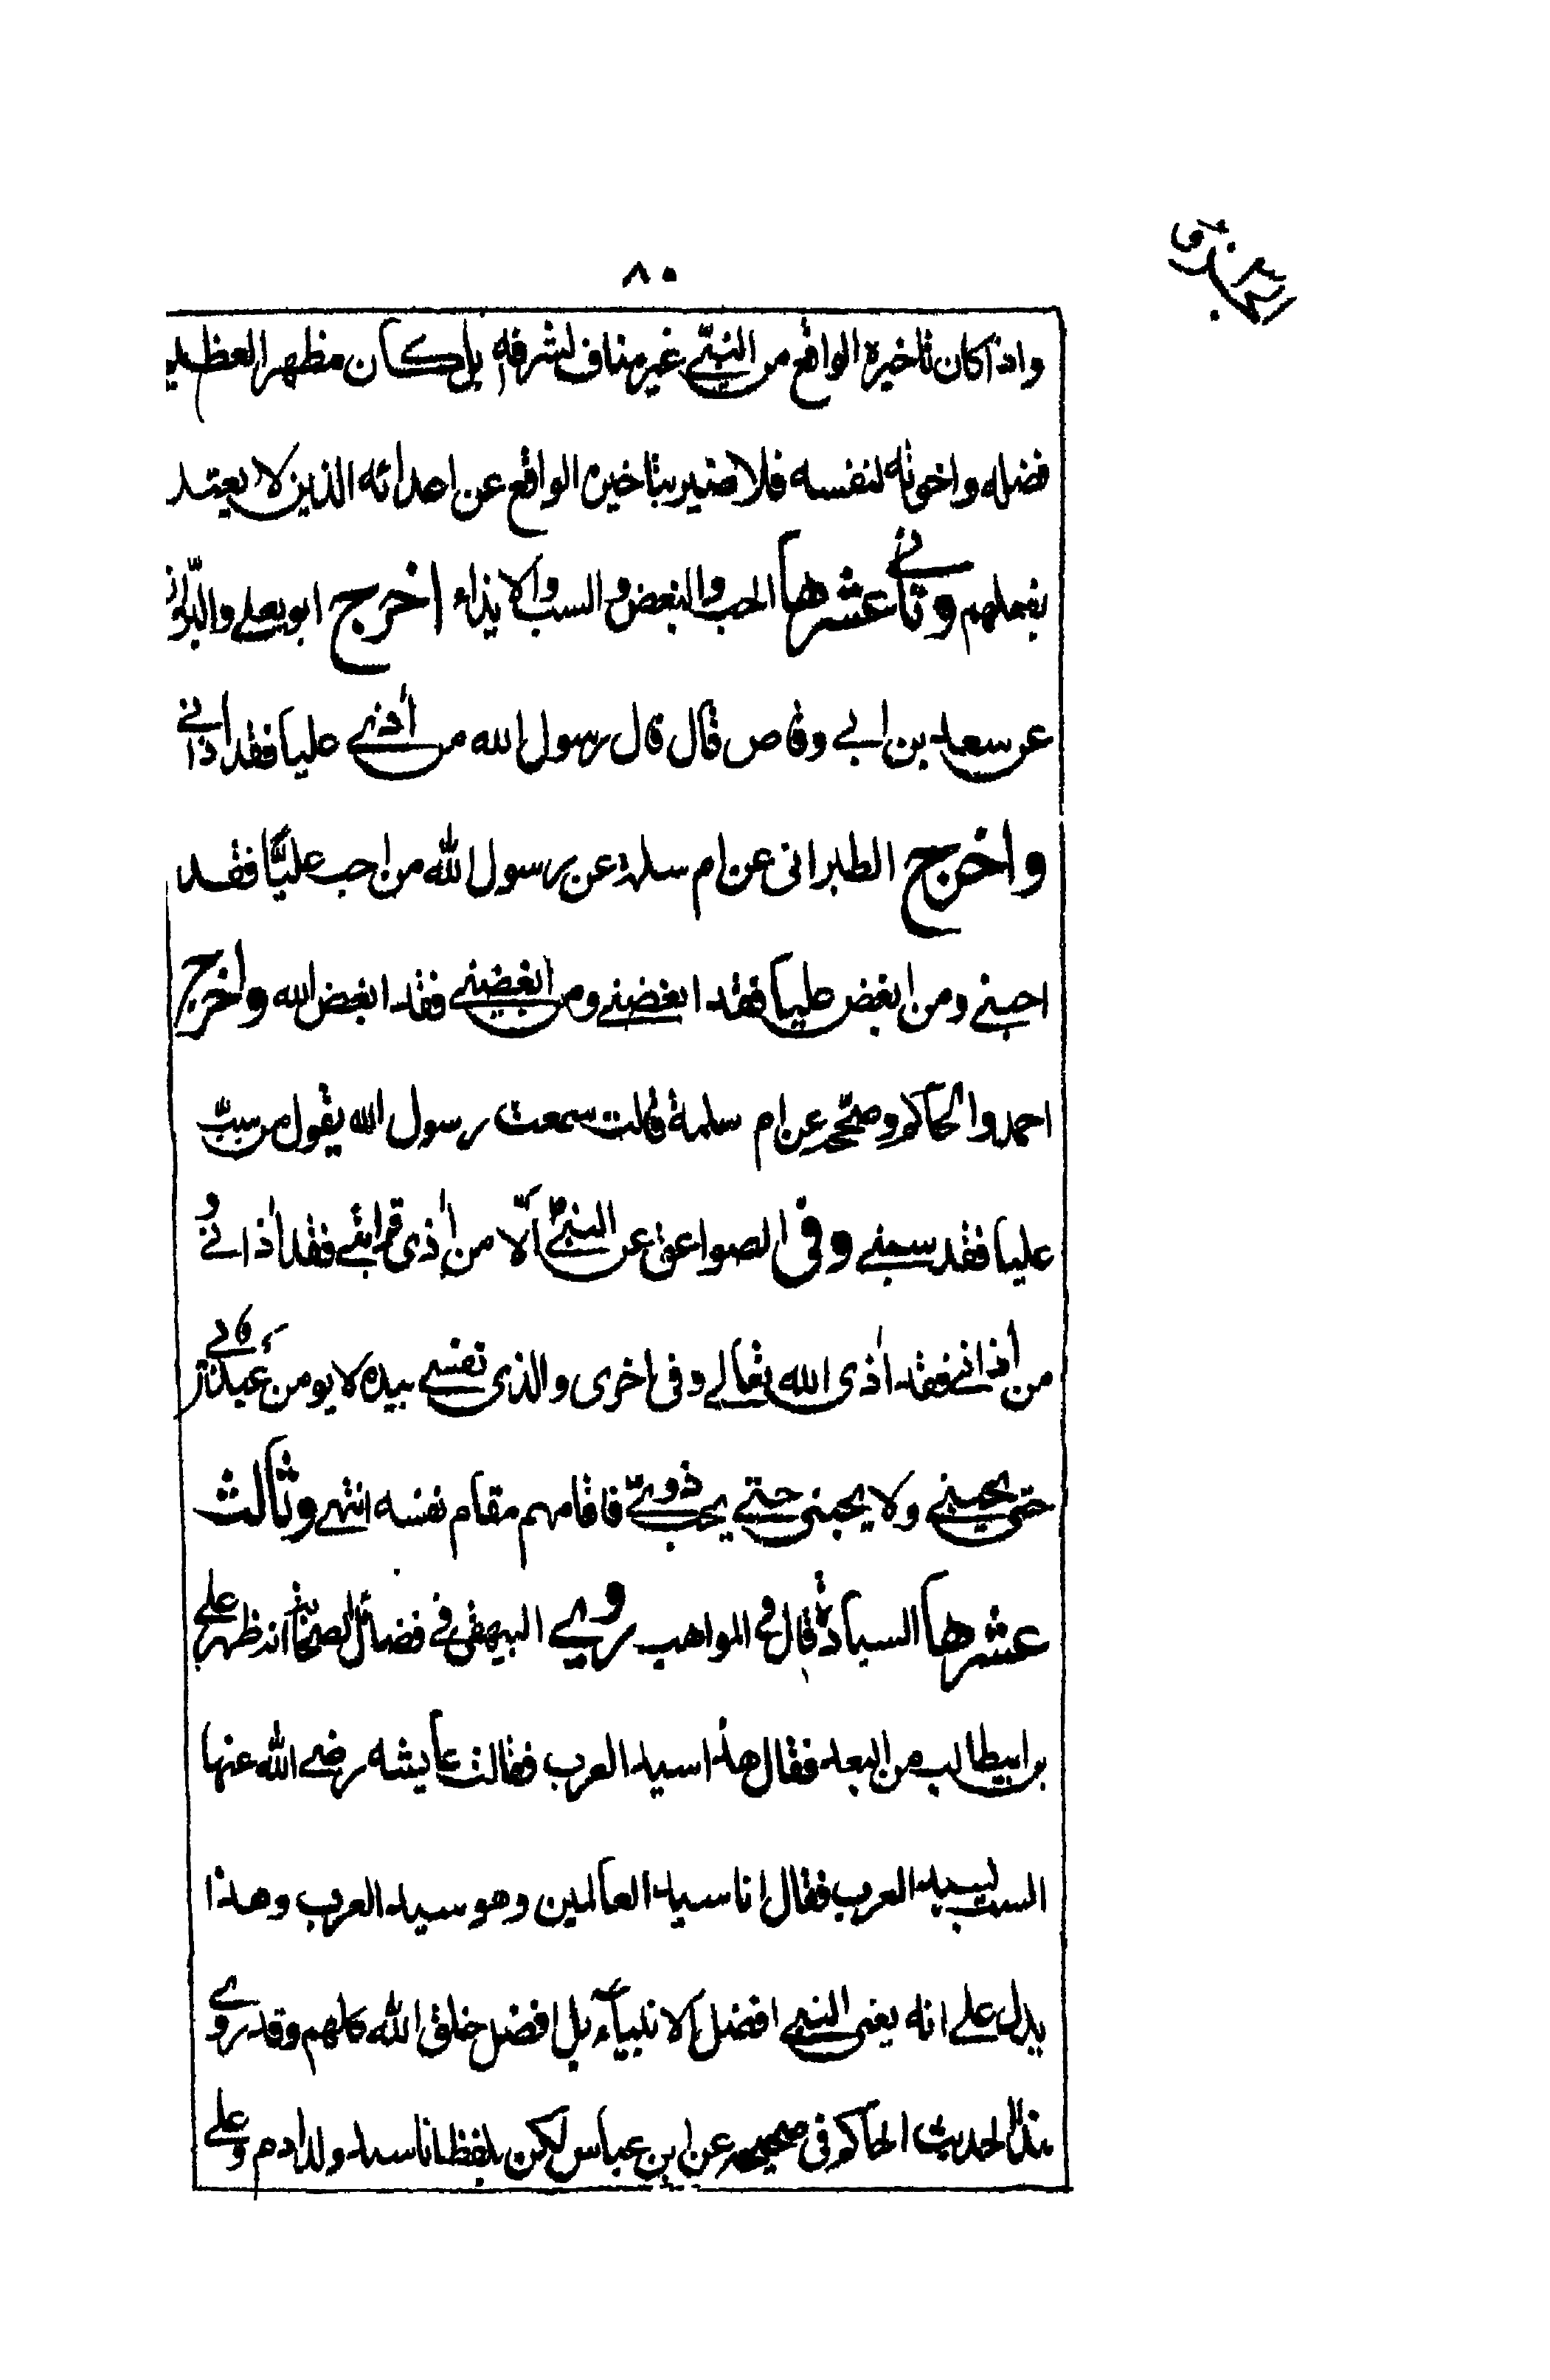 ٨٠
واذا كان تأخيره الواقع من النبى غير مناف لشرفه بل كان مظهرا لعظيم
فضله واخوته لنفسه فلا ضير بتاخيره الواقع عن اعدائه الذين لا يعتد
بفعلهم وثانى عشرها الحب والبغض والسب والايذاء اخرج ابويعلى والبزاز
عن سعد بن ابى وقاص قال قال رسول الله من اذى عليا فقد اذانى
واخرج الطبرانى عن ام سلمة عن رسول الله من احب عليا فقد
احبنى ومن ابغض عليا فقد ابغضنى ومن ابغضنى فقد ابغض الله واخرج
احمد والحاكم وصححه عن ام سلمة قالت سمعت رسول الله يقول من سب
عليا فقد سبنى وفى الصواعق عن النبى ألا من اذى قرابتى فقد اذانى و
من اذانى فقد اذى الله تعالى وفى اخرى والذى نفسى بيده لا يومن عبد بى
حتى يحبنى ولا يحبنى حتى يحب ذوى فاقامهم مقام نفسه انتهى وثالث
عشرها السيادة قال فى المواهب روى البيهقى فى فضائل الصحابة انه ظهر على
بن ابيطالب من البعد فقال هذا سيد العرب فقالت عايشه رضى الله عنها
الست بسيد العرب فقال انا سيد العالمين وهو سيد العرب وهذا
يدل على انه يعنى النبى افضل الانبياء بل افضل خلق الله كلهم وقد روى
هذا الحديث الحاكم فى صحيحه عن ابن عباس لكن بلفظ انا سيد ولد ادم وعلى